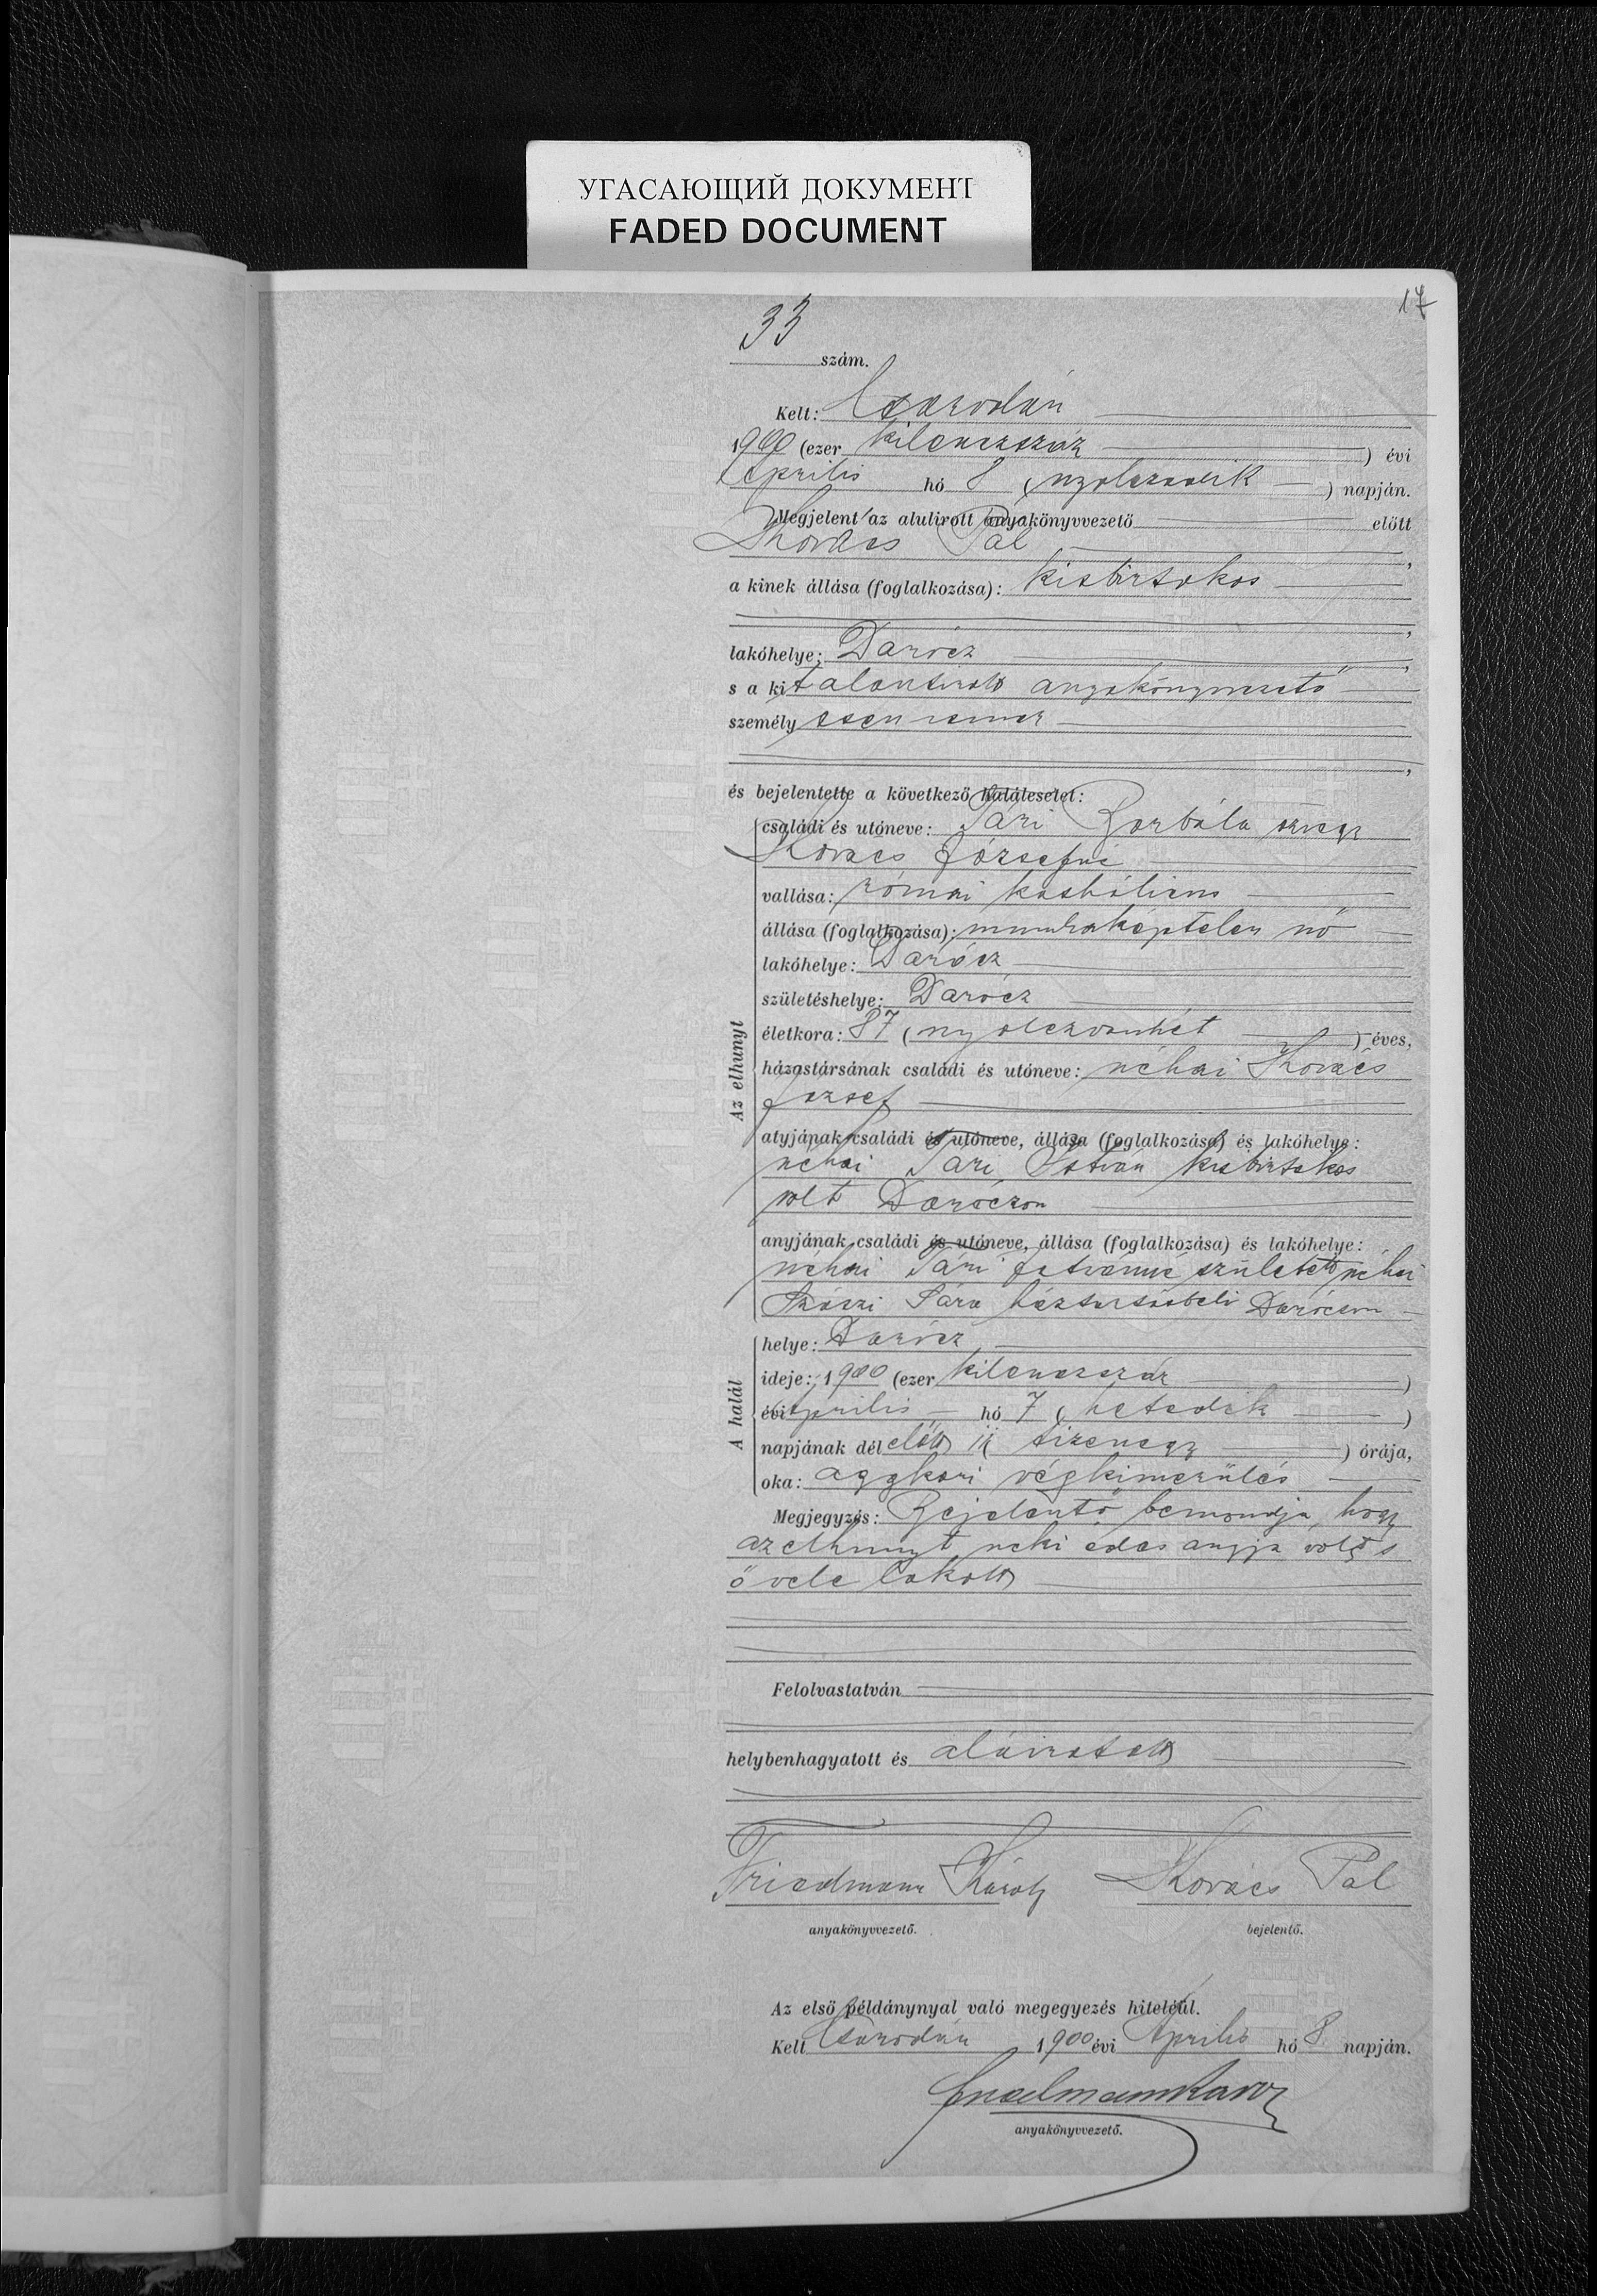 УГАСАЮЩИЙ ДОКУМЕНТ
FADED DOCUMENT
17
33
szám.
Kelt: Csarodán
1900 (ezer kilenczszáz) évi
április hó 8 (nyolczadik) napján.
Megjelent az alulirott anyakönyvvezető előtt
Kovács Pál,
a kinek állása (foglalkozása): kisbirtokos
lakóhelye: Darócz,
s a kit alantirott anyakönyvvezető
személyesen ismer
és bejelentette a következő halálesetet:
Az elhunyt
családi és utóneve: Pári Borbála özvegy
Kovács Józsefné
vallása: római katholicus
állása (foglalkozása): munkaképtelen nő
lakóhelye: Darócz
születéshelye: Darócz
életkora: 87 (nyolczvanhét) éves,
házastársának családi és utóneve: néhai Kovács
József
atyjának családi és utóneve, állása (foglalkozása) és lakóhelye:
néhai Pári István kisbirtokos
volt Daróczon
anyjának családi és utóneve, állása (foglalkozása) és lakóhelye:
néhai Pári Istvánné született néhai
Sára háztartásbeli Daróczon
A halál
helye: Darócz
ideje: 1900 (ezer kilenczszáz)
évi április hó 7 (hetedik)
napjának dél előtt 11 (tizenegy) órája,
oka: aggkori végkimerülés
Megjegyzés: Bejelentő bemondja, hogy
az elhunyt neki édes anyja volt s
ő vele lakott
Felolvastatván
helybenhagyatott és aláiratott
Friedmann Károly Kovács Pál
anyakönyvvezető. bejelentő.
Az első példánynyal való megegyezés hiteléül.
Kelt Csarodán 1900 évi április hó 8 napján.
Károly
anyakönyvvezető.